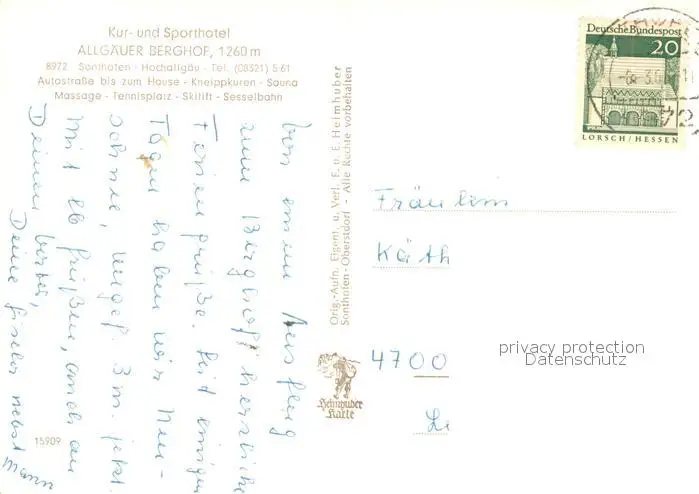 Kur- und Sporthotel
ALLGÄUER BERGHOF, 1260 m
8972 Sonthofen - Hochallgäu - Tel. (08321) 5 61
Autostraße bis zum Hause - Kneippkuren - Sauna
Massage - Tennisplatz - Skilift - Sesselbahn
Von einem Ausflug
zum Berghof herzliche
Feriengrüße. Seit einigen
Tagen haben wir Neu-
schnee, ungef. 3 m. jetzt.
Mit lb Grüßen, auch an
Deinen
Deine nebst
Mann
15909
Orig.-Aufn. Eigent. u. Verl. E. u. E. Heimhuber
Sonthofen-Oberstdorf - Alle Rechte vorbehalten
Heimhuber
Karte
Deutsche Bundespost
20
LORSCH/HESSEN
Fräulein
Käth
4700
privacy protection
Datenschutz